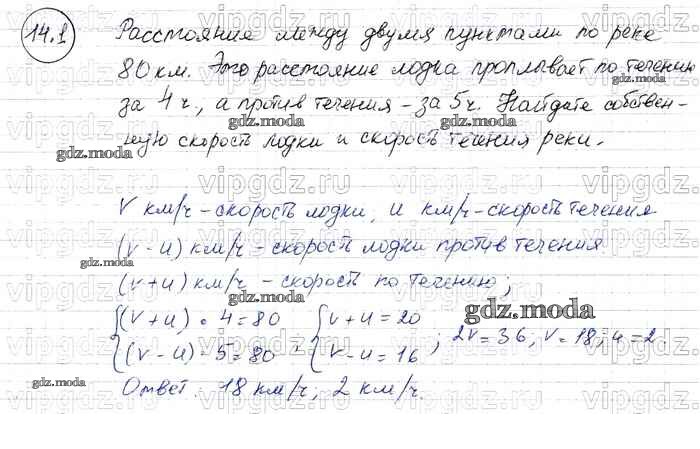 14.1 Расстояние между двумя пунктами по реке
80 км. Это расстояние лодка проплывает по течению
за 4 ч., а против течения – за 5 ч. Найдите собствен-
ную скорость лодки и скорость течения реки.
V км/ч – скорость лодки, и км/ч – скорость течения
(v - u) км/ч – скорость лодки против течения
(v + u) км/ч – скорость по течению;
{(v + u) • 4 = 80 {v + u = 20
{(v - u) • 5 = 80 ; {v - u = 16 ; 2v = 36, v = 18; u = 2.
Ответ: 18 км/ч; 2 км/ч.
vipgdz.ru
gdz.moda